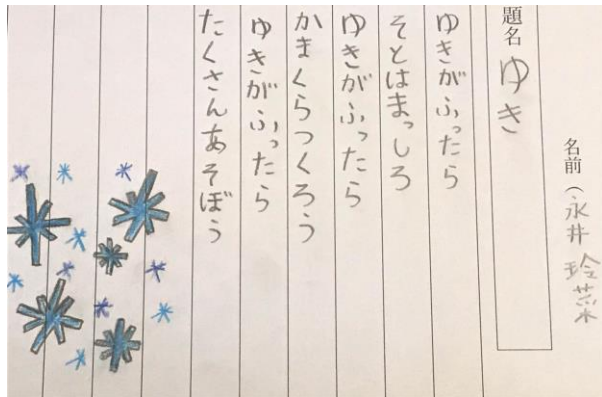 名前(永井 玲菜
題名 ゆき
ゆきがふったら
そとはまっしろ
ゆきがふったら
かまくらつくろう
ゆきがふったら
たくさんあそぼう